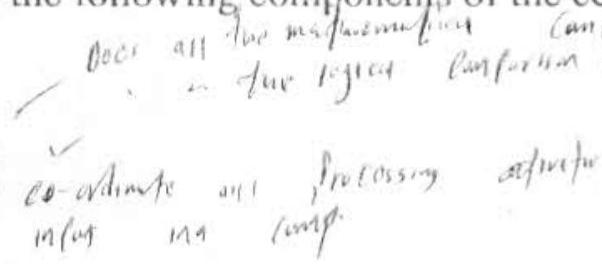 the following components of the co
Does all the mathematical Com
" " the logical Comparison
co-ordinate all processing activitie
input in a comp.